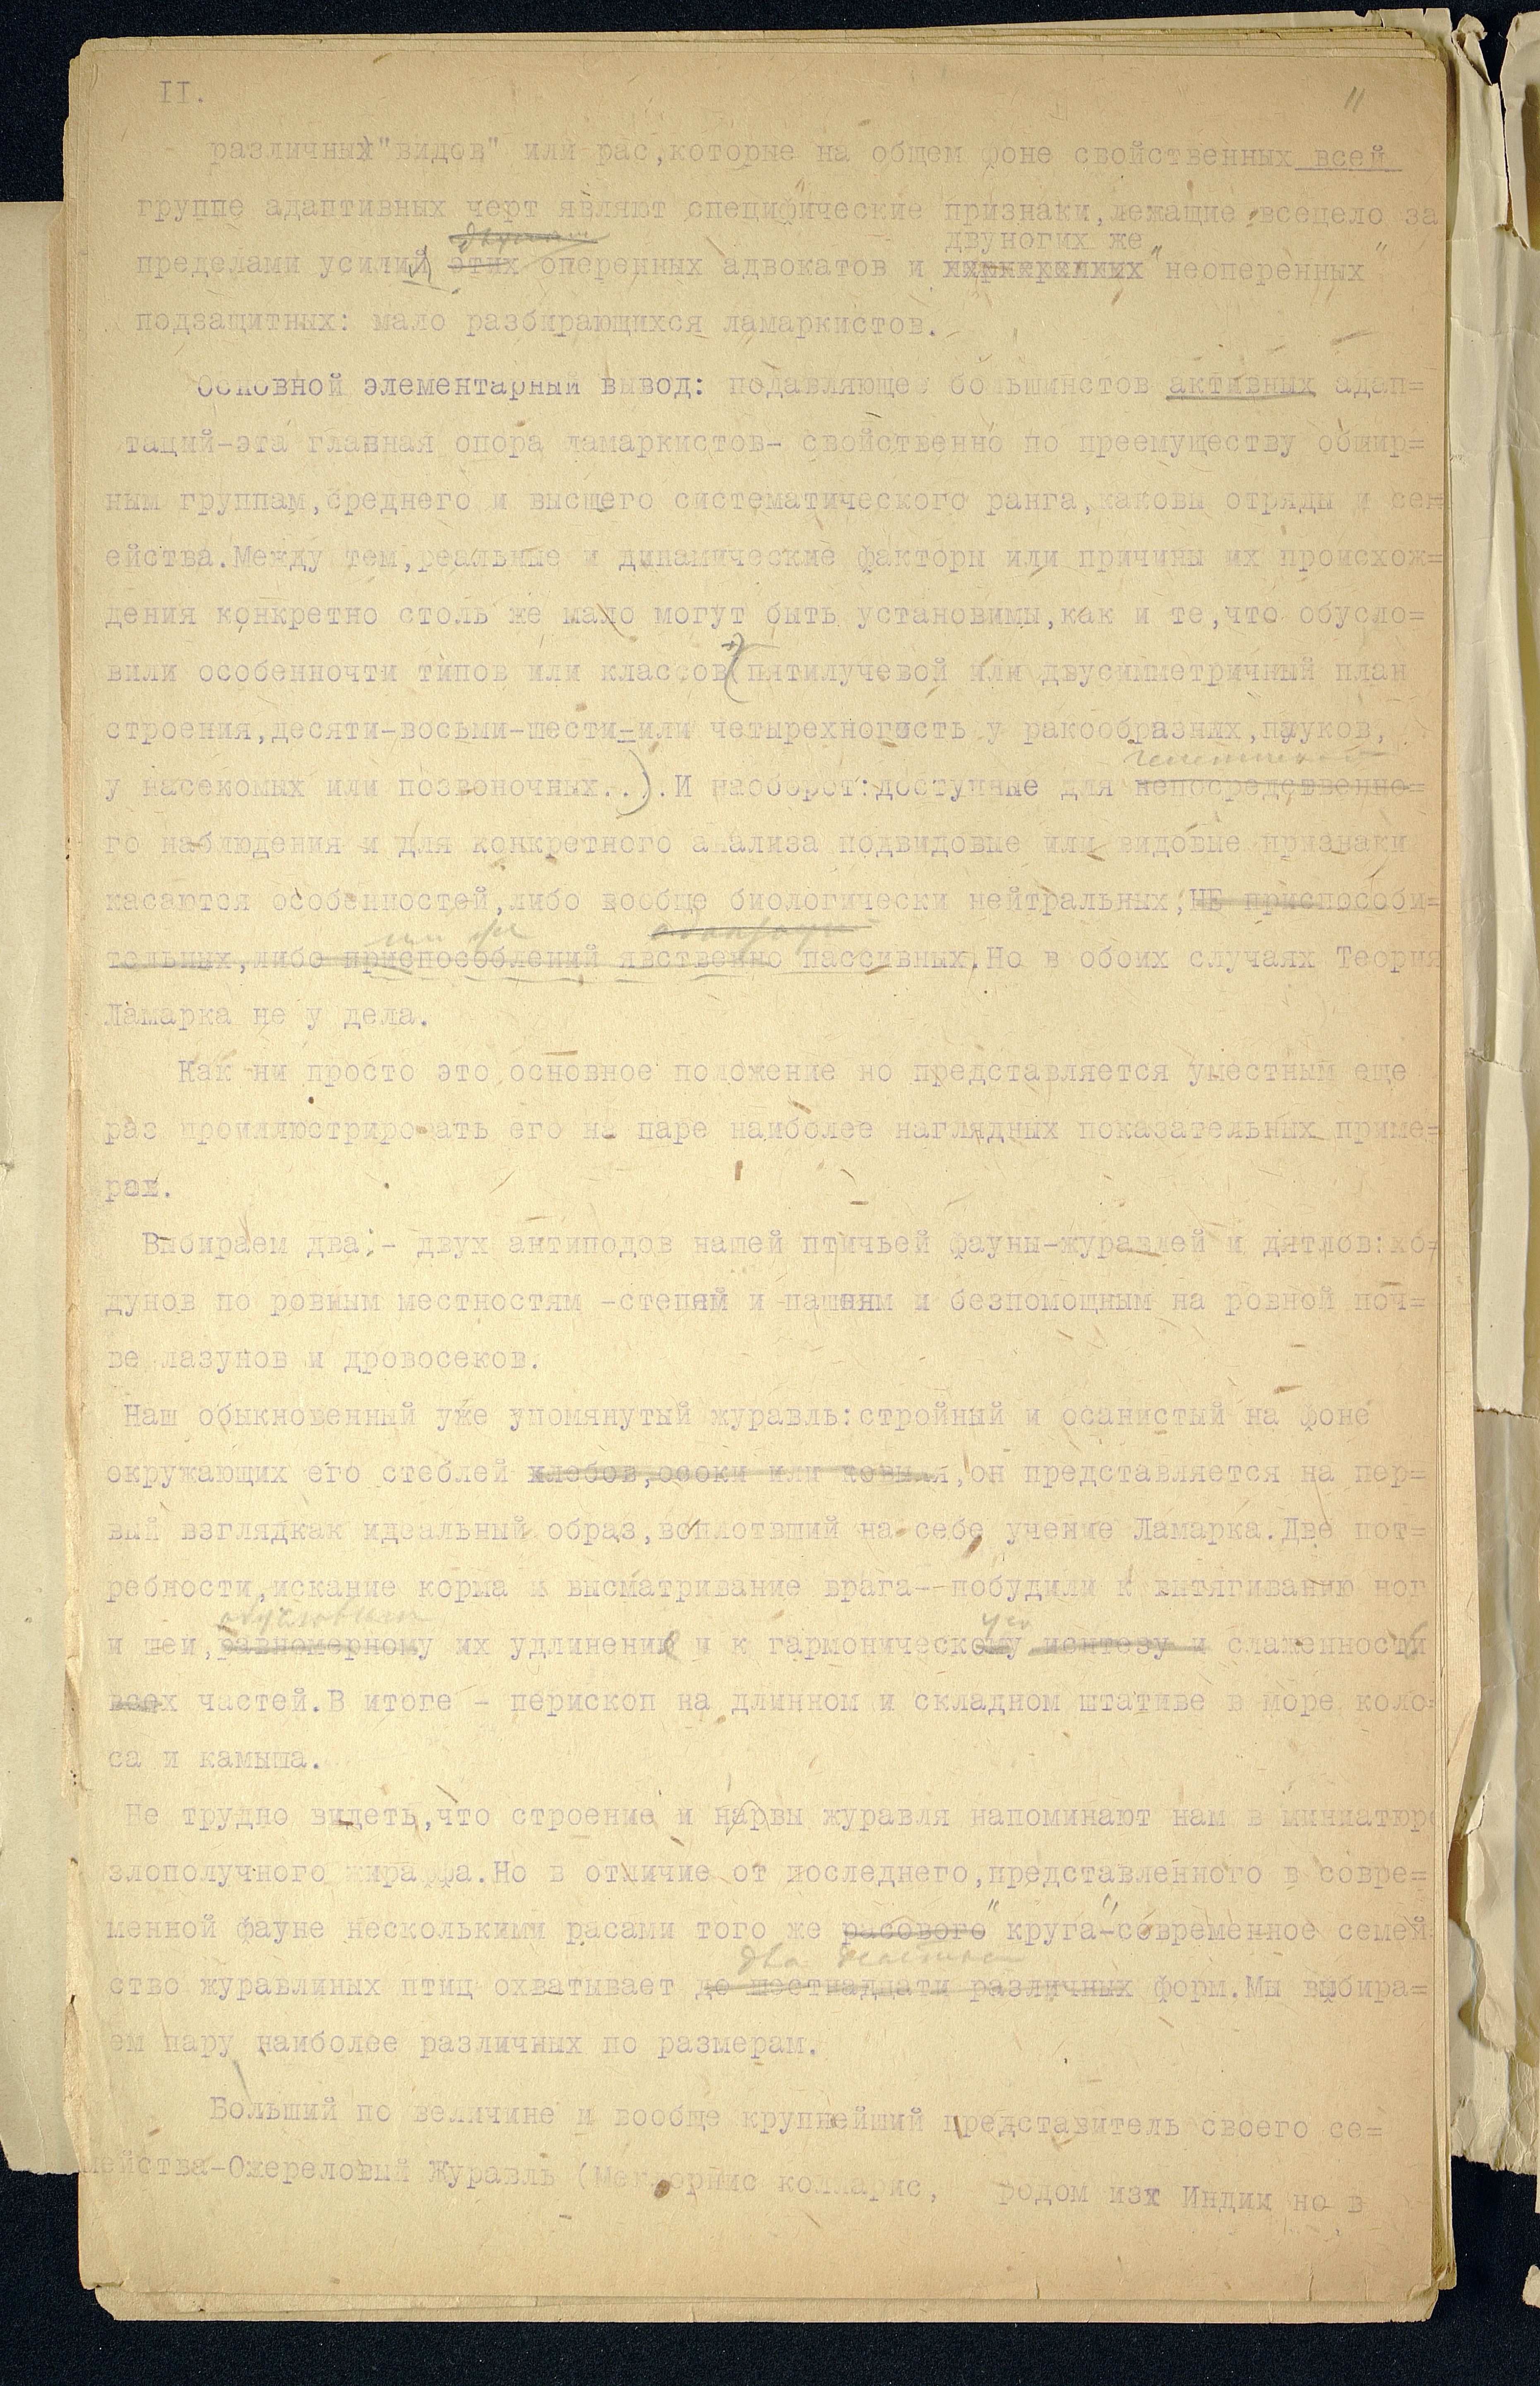 II. 11
различных "видов" или рас,которые на общем фоне свойственных всей
группе адаптивных черт являют специфические признаки,лежащие всецело за
двуногих же
пределами усилий этих оперенных адвокатов и "неоперенных"
подзащитных: мало разбирающихся ламаркистов.
Основной элементарный вывод: подавляющее большинстов активных адап=
таций-эта главная опора ламаркистов- свойственно по преемуществу обшир=
ным группам,среднего и высшего систематического ранга,каковы отряды и сем=
ейства.Между тем,реальные и динамические факторы или причины их происхож=
дения конкретно столь же мало могут быть установимы,как и те,что обусло=
вили особенночти типов или классов (пятилучевой или двусимметричный план
строения,десяти-восьми-шести-или четырехногость у ракообразных,пауков,
у насекомых или позвоночных...).И наоборот:доступные для непосредственно=
го наблюдения и для конкретного анализа подвидовые или видовые признаки
касаются особенностей,либо вообще биологически нейтральных,НЕ приспособи=
тельных,либо приспособлений явственно пассивных.Но в обоих случаях Теория
Ламарка не у дела.
Как ни просто это основное положение но представляется уместным еще
раз проиллюстрировать его на паре наиболее наглядных показательных приме=
ров.
Выбираем два:- двух антиподов нашей птичьей фауны-журавлей и дятлов:хо=
дунов по ровным местностям -степям и пашням и безпомощным на ровной поч=
ве лазунов и дровосеков.
Наш обыкновенный уже упомянутый журавль:стройный и осанистый на фоне
окружающих его стеблей хлебов,осоки или ковыля,он представляется на пер=
вый взглядкак идеальный образ,воплотвший на себе учение Ламарка.Две пот=
ребности,искание корма и высматривание врага--побудили к вытягиванию ног
обусловили
и шеи,равномерному их удлинению и к гармоническому и слаженности
всех частей.В итоге - перископ на длинном и складном штативе в море коло=
са и камыша.
Не трудно видеть,что строение и нарвы журавля напоминают нам в миниатюре
злополучного жираффа.Но в отличие от последнего,представленного в совре=
менной фауне несколькими расами того же расового "круга"-современное семей
два десятка
ство журавлиных птиц охватывает до шестнадцати различных форм.Мы выбира=
ем пару наиболее различных по размерам.
Больший по величине и вообще крупнейший представитель своего се=
мейства-Ожереловый Журавль (Мегаорнис колларис, родом из Индии но в